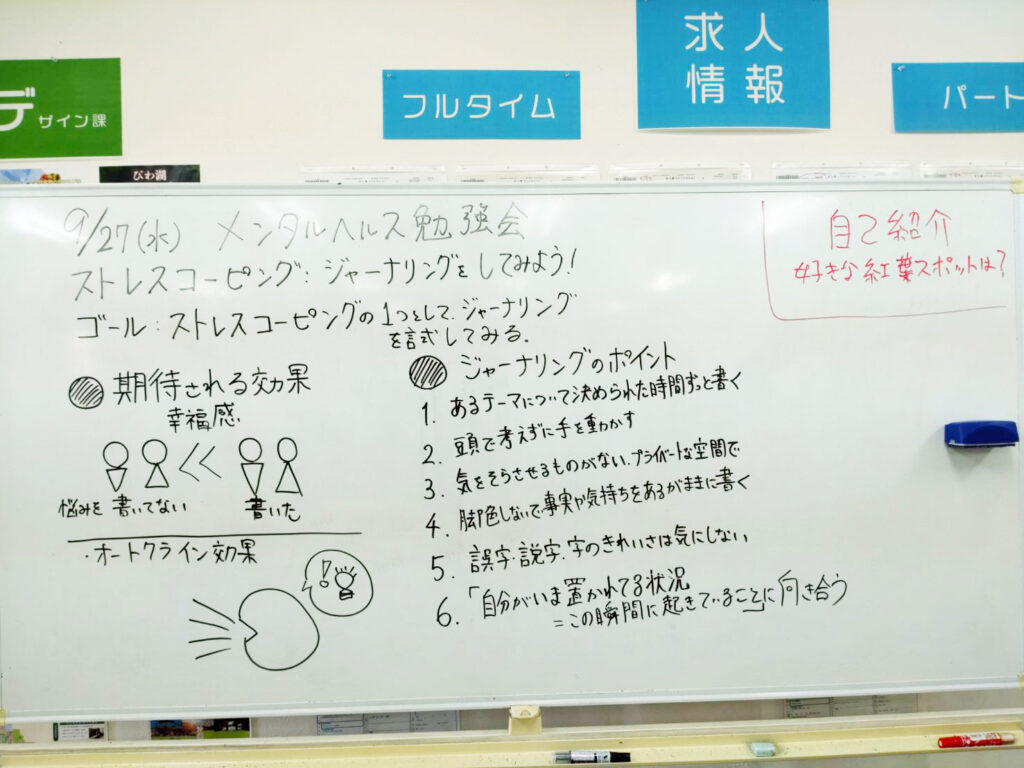 求人
情報
デザイン課
フルタイム
パート
びわ湖
9/27(水) メンタルヘルス勉強会
ストレスコーピング：ジャーナリングをしてみよう！
ゴール：ストレスコーピングの1つとして、ジャーナリング
を試してみる。
自己紹介
好きな紅葉スポットは？
期待される効果
幸福感
<<
悩みを書いてない
書いた
・オートクライン効果
!
ジャーナリングのポイント
1. あるテーマについて決められた時間ずっと書く
2. 頭で考えずに手を動かす
3. 気をそらさせるものがない、プライベートな空間で
4. 脚色しないで、事実や気持ちをあるがままに書く
5. 誤字・説字、字のきれいさは気にしない
6. 「自分がいま置かれてる状況
＝この瞬間に起きていること」に向き合う